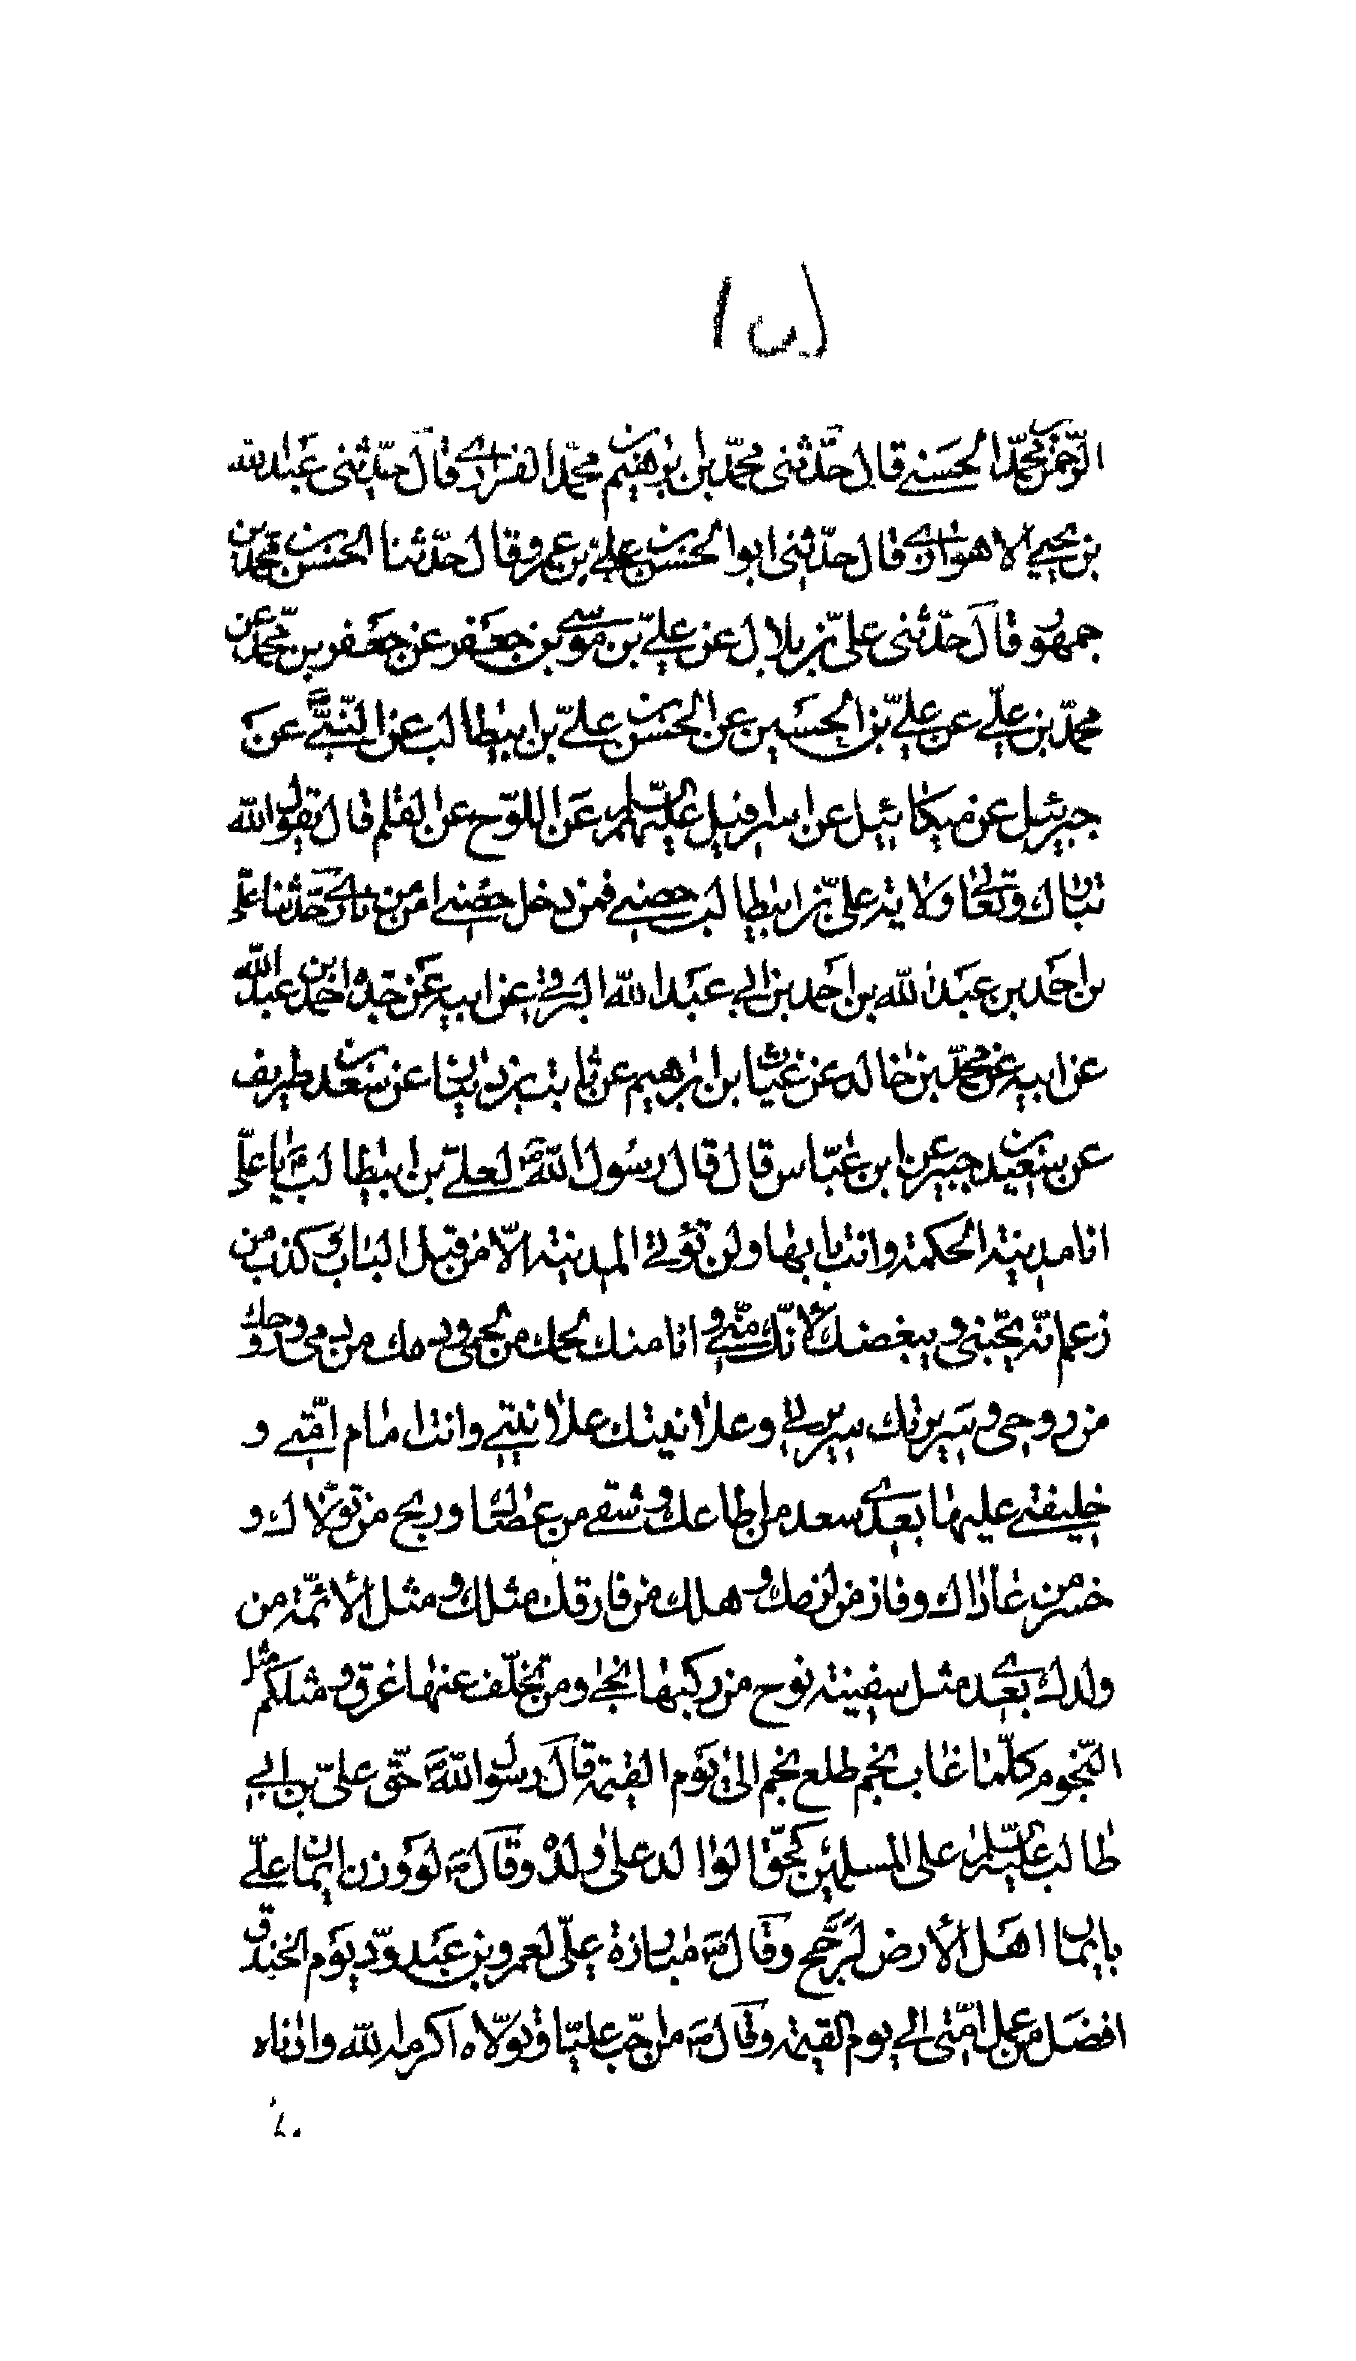 الرّحمن بن محمّد الحسنے قال حدّثنی محمّد بن ابرٰهيم بن محمّد الفزاری قال حدّثنی عبد الله
بن يحيي الاهوازی قال حدّثنی ابو الحسن بن علے بن عمرو قال حدّثنا الحسن بن محمّد بن
جمهور قال حدّثنی علیّ بن بلال عن علیّ بن موسی بن جعفر عن جعفر بن محمّد عن
محمّد بن علے عن علیّ بن الحسين عن الحسن بن علیّ بن ابیطالب عن النبیّ عن
جبرئيل عن ميكائيل عن اسرافيل عليهم السّلم عن اللوح عن القلم قال يقول الله
تبارك وتعالی ولاية علیّ بن ابیطالب حصنے فمن دخل حصنے امن من ناری حدّثنا علی
بن احمد بن عبد الله بن احمد بن ابی عبد الله البرقے عن ابيه عن جدّه احمد بن عبد الله
عن ابيه عن محمّد بن خالد عن غياث بن ابرٰهيم عن ثابت بن دينار عن سعد بن طريف
عن سعيد بن جبير عن ابن عبّاس قال قال رسول الله ص لعلیّ بن ابیطالب يا علی
انا مدينة الحكمة وانت بابها ولن تؤتی المدينة الّا من قبل الباب وكذب من
زعم انّه يحبّنی ويبغضك لانّك منّی وانا منك لحمك من لحمی ودمك من دمی وروحك
من روحی وسريرتك سريرتی وعلانيتك علانيتے وانت امام امّتے و
خليفتے عليها بعدی سعد من اطاعك وشقی من عصاك وربح من تولّاك و
خسر من عاداك وفاز من لزمك وهلك من فارقك مثلك ومثل الأئمّة من
ولدك بعدی مثل سفينة نوح من ركبها نجی ومن تخلّف عنها غرق ومثلكم مثل
النّجوم كلّما غاب نجم طلع نجم الی يوم القيمة قال رسول الله ص حقّ علیّ بن ابی
طالب عليه السّلم علی المسلمين كحقّ الوالد علی ولده وقال ص لو وزن ايمان علیّ
بايمان اهل الأرض لرجّح وقال ص مبارزة علیّ لعمرو بن عبد ودّ يوم الخندق
افضل من عمل امّتی الی يوم القيمة وقال ص من احبّ عليّا وتولّاه اكرمه الله وادناه